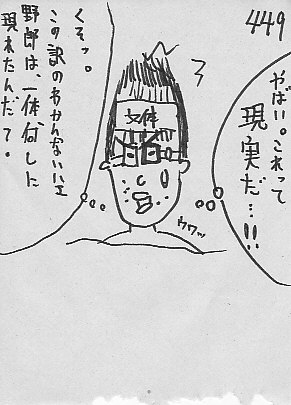 449
やばい。これって
現実だ…!!
女体
ウワッ
くそっ。
この訳のわかんないハエ
野郎は、一体何しに
現れたんだて。